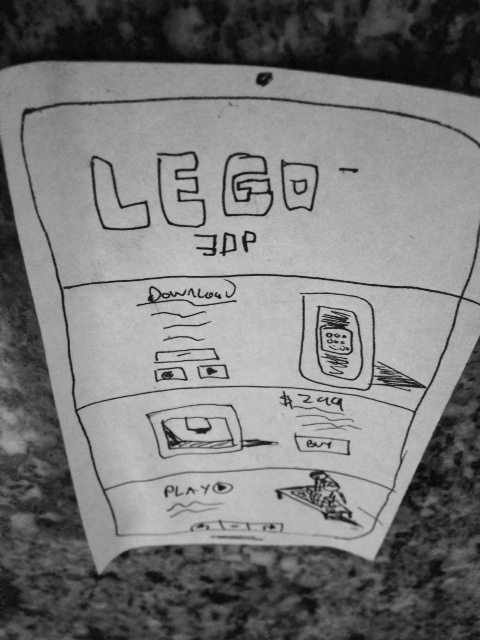 LEGO
3DP
DOWNLOAD
$299
BUY
PLAY